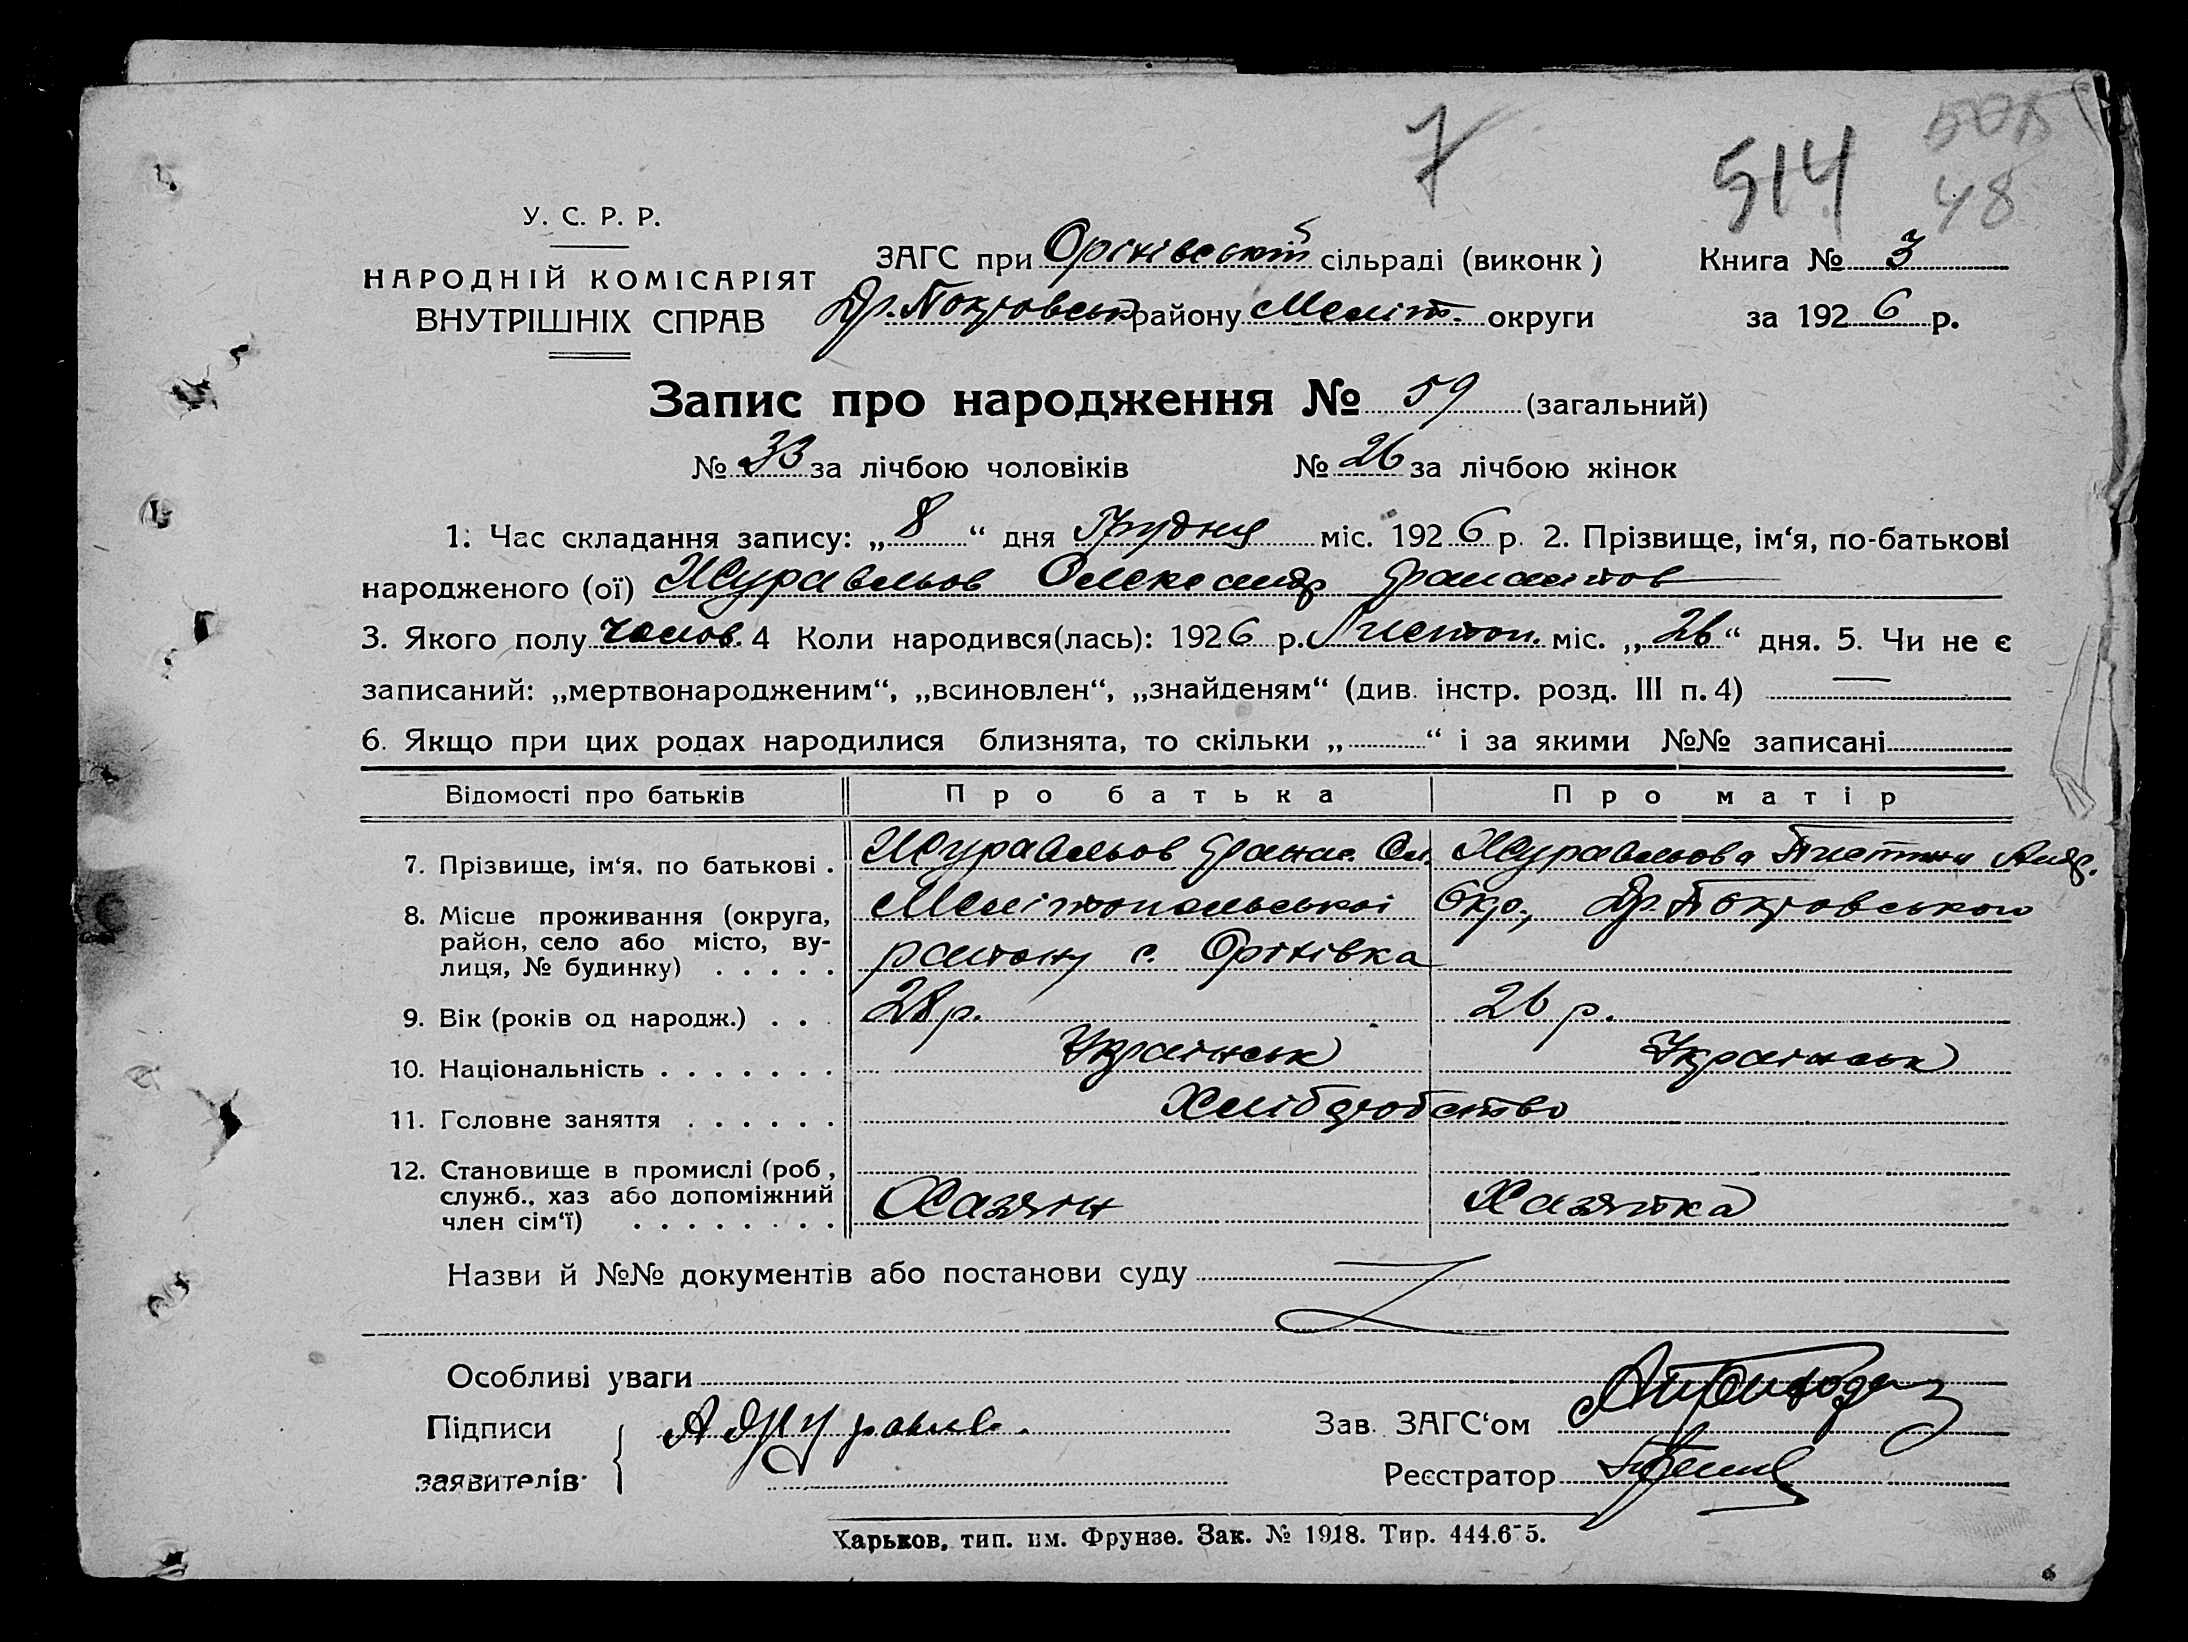 7
514
48
У. С. Р. Р.
НАРОДНІЙ КОМІСАРІЯТ
ВНУТРІШНІХ СПРАВ
ЗАГС при Орінівській сільраді (виконк)
Др. Покровськ району Меліт. округи
Книга № 3
за 1926 р.
Запис про народження № 59 (загальний)
№ 33 за лічбою чоловіків № 26 за лічбою жінок
1. Час складання запису: „ 8 “ дня Грудня міс. 1926 р. 2. Прізвище, ім‘я, по-батькові
народженого (ої) Журавльов Олександр
3. Якого полу чолов. 4 Коли народився(лась): 1926 р. Листоп. міс. „ 26 “ дня. 5. Чи не є
записаний: „мертвонародженим“, „всиновлен“, „знайденям“ (див. інстр. розд. III п. 4) —
6. Якщо при цих родах народилися близнята, то скільки „ “ і за якими №№ записані
Відомості про батьків Про батька Про матір
7. Прізвище, ім‘я, по батькові . Журавльов Ол. Журавльова
8. Місце проживання (округа, Мелітопольської Окр., Др. Покровського
район, село або місто, ву-
лиця, № будинку) . . . . . району с. Орінівка
9. Вік (років од народж.) . . . 28 р. 26 р.
10. Національність . . . . . . . Українськ Українськ
11. Головне заняття . . . . . . Хліборобство
12. Становище в промислі (роб.,
служб., хаз або допоміжний Хазяїн Хазяйка
член сім‘ї) . . . . . . . .
Назви й №№ документів або постанови суду
Особливі уваги
Підписи
заявителів
А Журавльов
Зав. ЗАГС‘ом
Реєстратор
Харьков, тип. им. Фрунзе. Зак. № 1918. Тир. 444.6
6